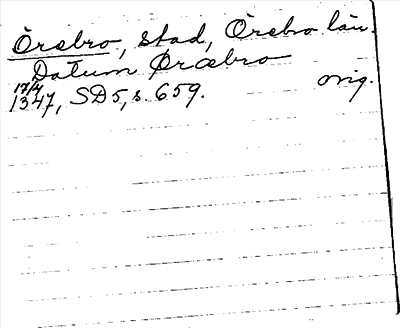 Örebro, stad, Örebro län.
Datum Øræbro
17/4 orig.
1347, SD5, s. 659.